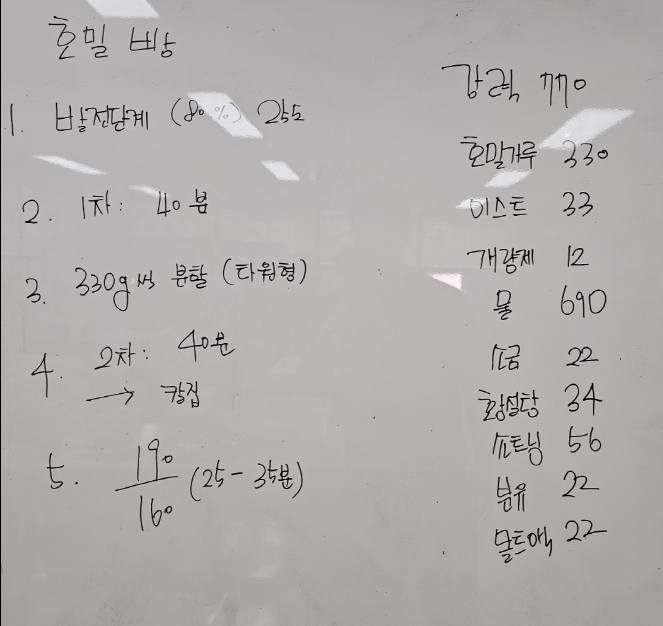 호밀 빵
1. 발전단계 (80%) 25도
2. 1차: 40분
3. 330g씩 분할 (타원형)
4. 2차: 40분
→ 칼집
5. 190/160 (25-35분)
강력 770
호밀가루 330
이스트 33
개량제 12
물 690
소금 22
황설탕 34
쇼트닝 56
분유 22
몰트액 22